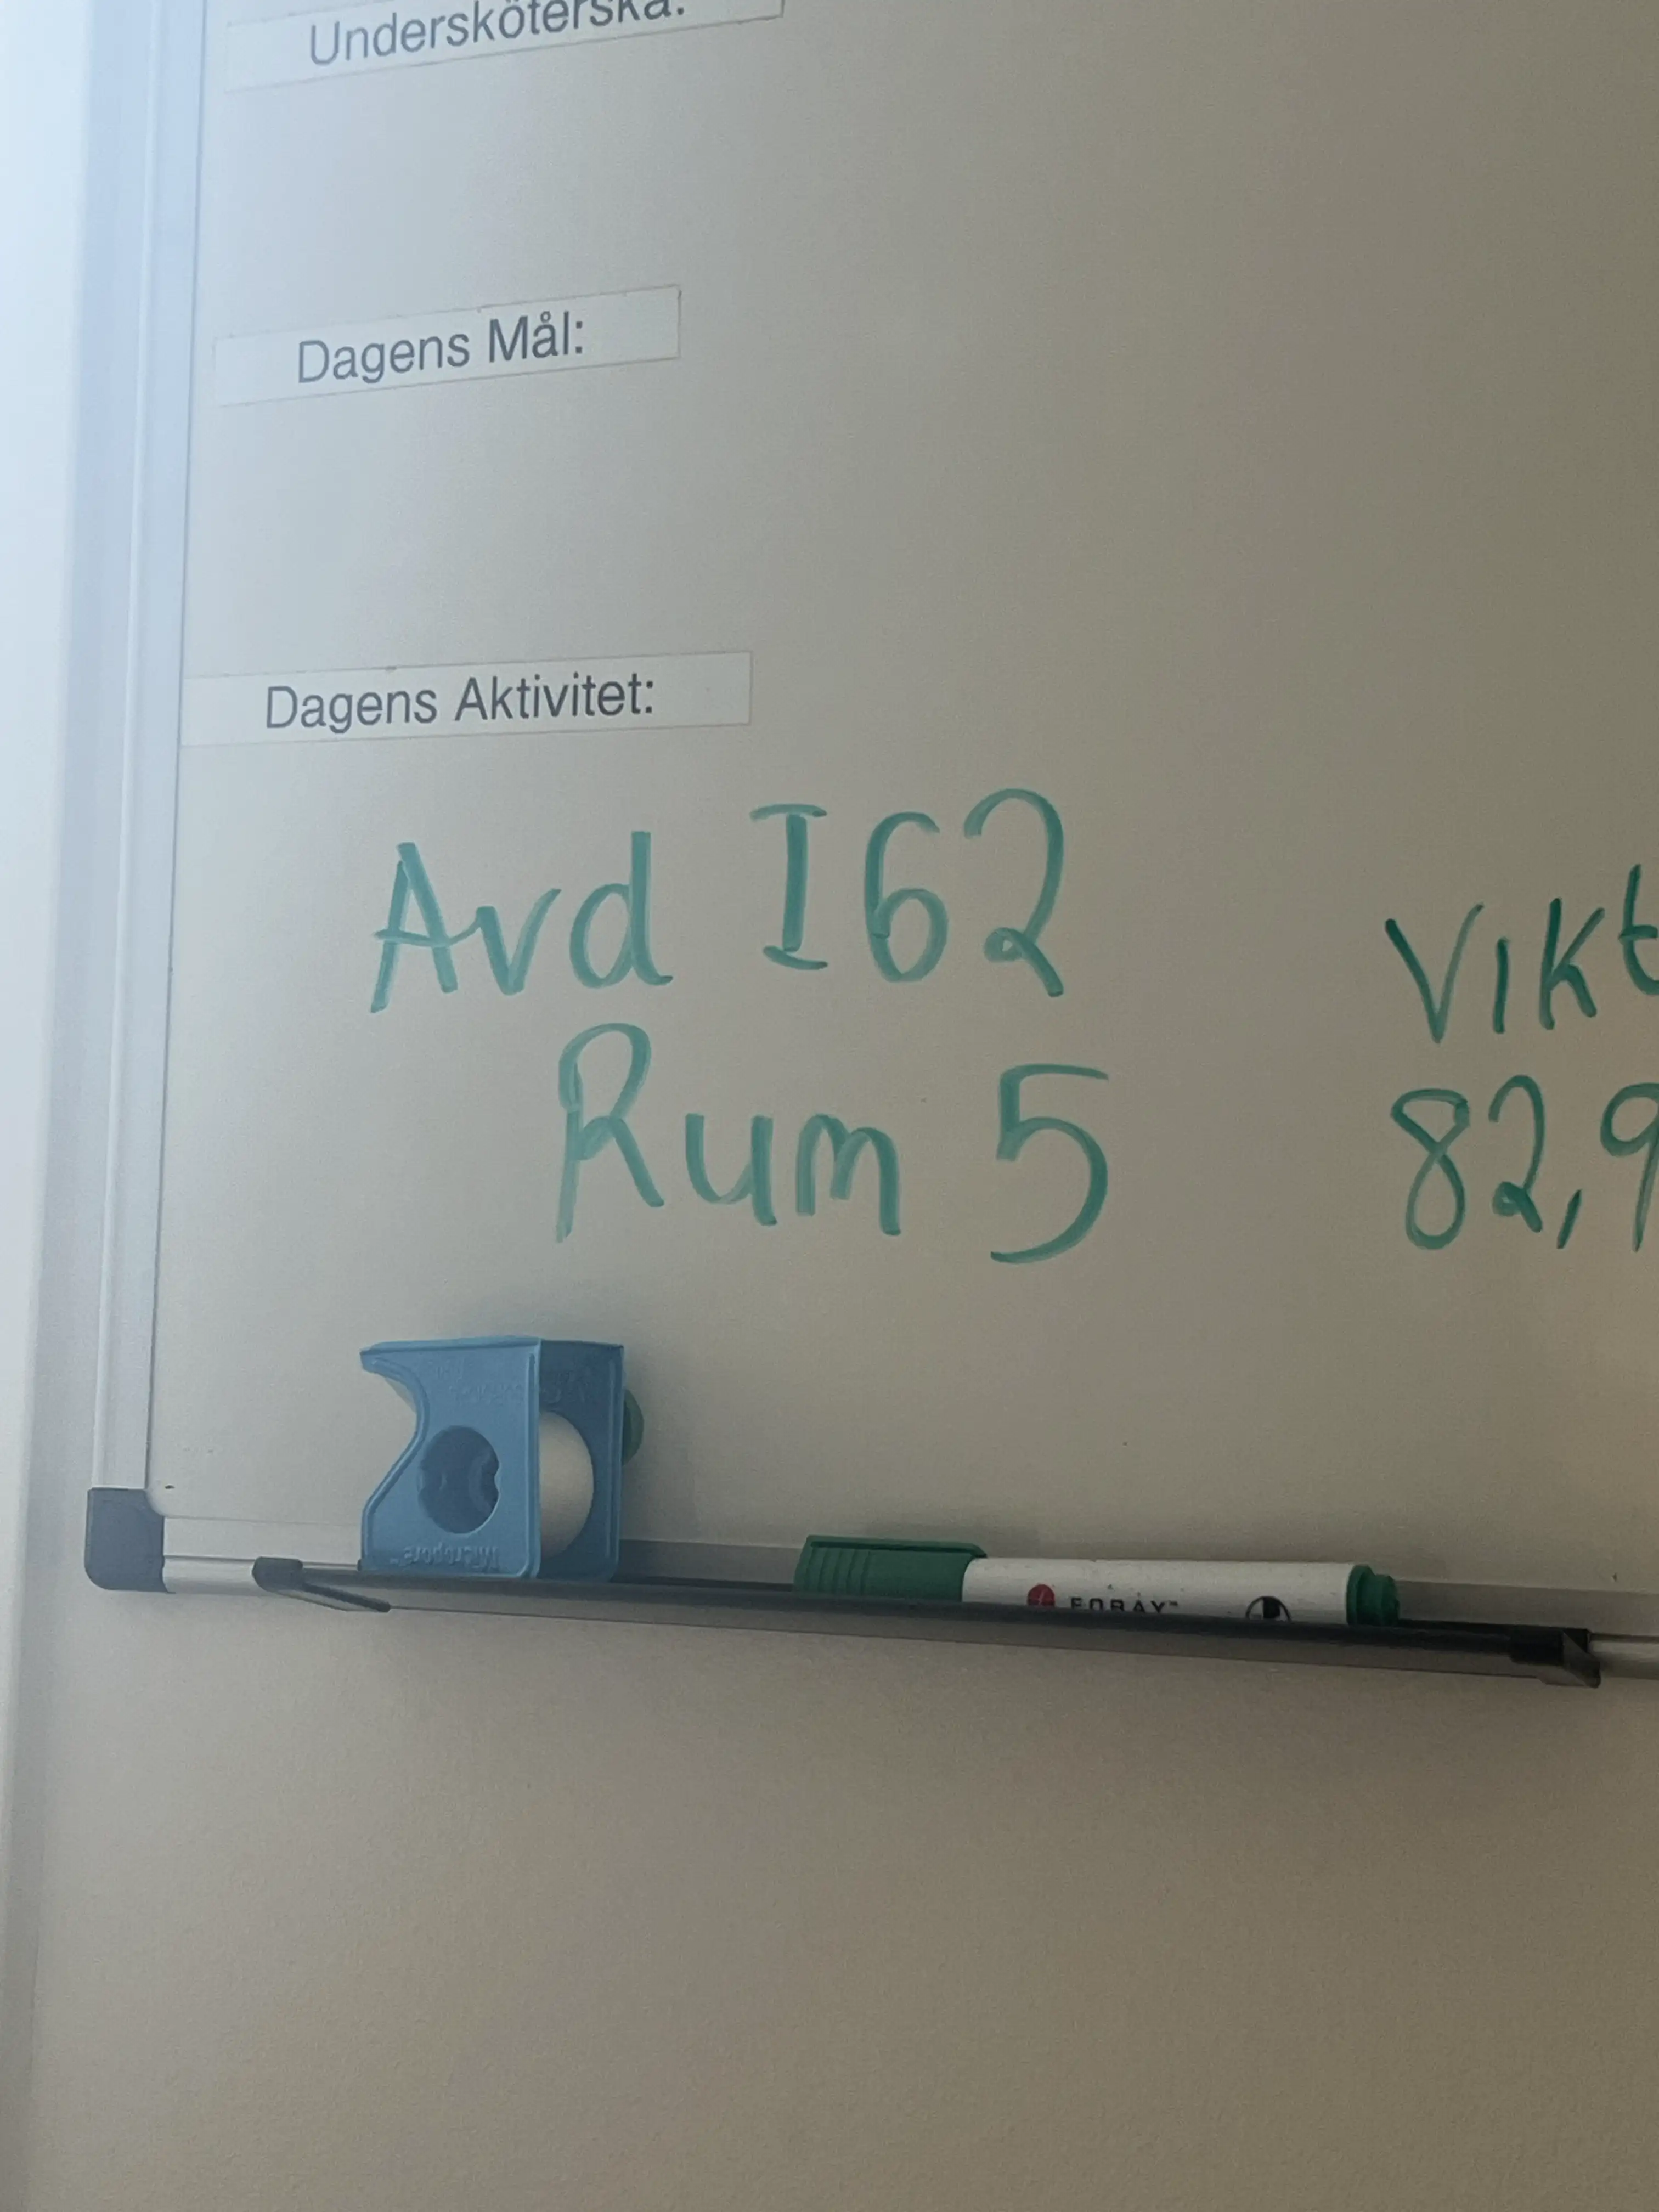 Undersköterska:
Dagens Mål:
Dagens Aktivitet:
Avd I62
Rum 5
Vikt
82,9
Micropore™
FORAY™